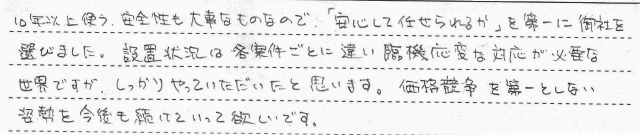 10年以上使う、安全性も大事なものなので、「安心して任せられるか」を第一に御社を
選びました。設置状況は各案件ごとに違い臨機応変な対応が必要な
世界ですが、しっかりやっていただいたと思います。価格競争を第一としない
姿勢を今後も続けていって欲しいです。